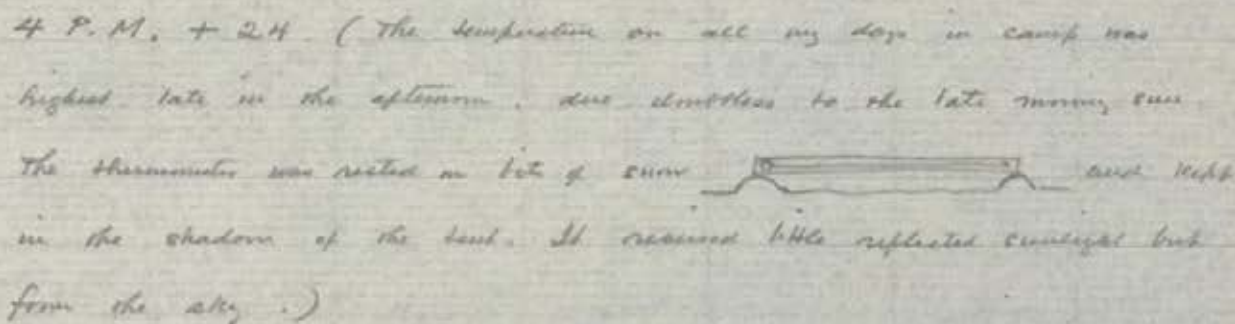 4 P.M. + 24 (The temperature on all my days in camp was
highest late in the afternoon, due doubtless to the late morning sun.
The thermometer was rested on bits of snow and kept
in the shadow of the tent. It received little reflected sunlight but
from the sky.)